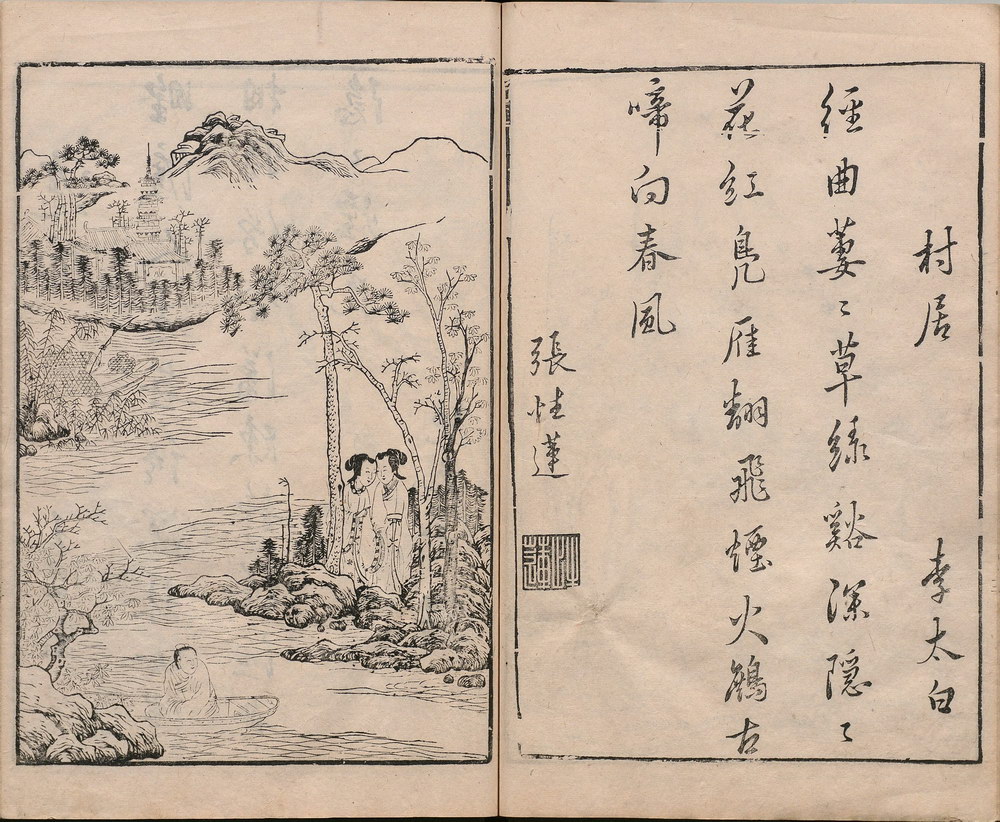 村居 李太白
徑曲萋〻草綠谿深隱〻
花紅鳧雁翻飛煙火鷓古
啼向春風
張